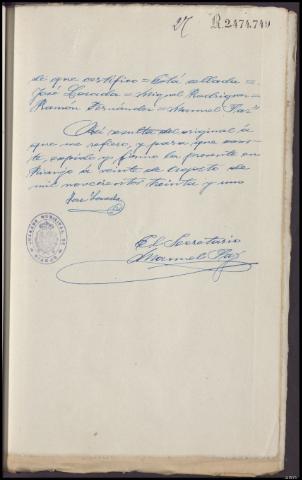 27 R.2474.749
de que certifico = Está sellada =
José Losada = Miguel Rodríguez =
Ramón Fernández = Manuel Paz
Así resulta del original á
que me refiero, y para que cons-
te, expido y firmo la presente en
á veinte de agosto de
mil novecientos treinta y uno
José Losada
El Secretario
Manuel Paz
JUZGADO MUNICIPAL DE